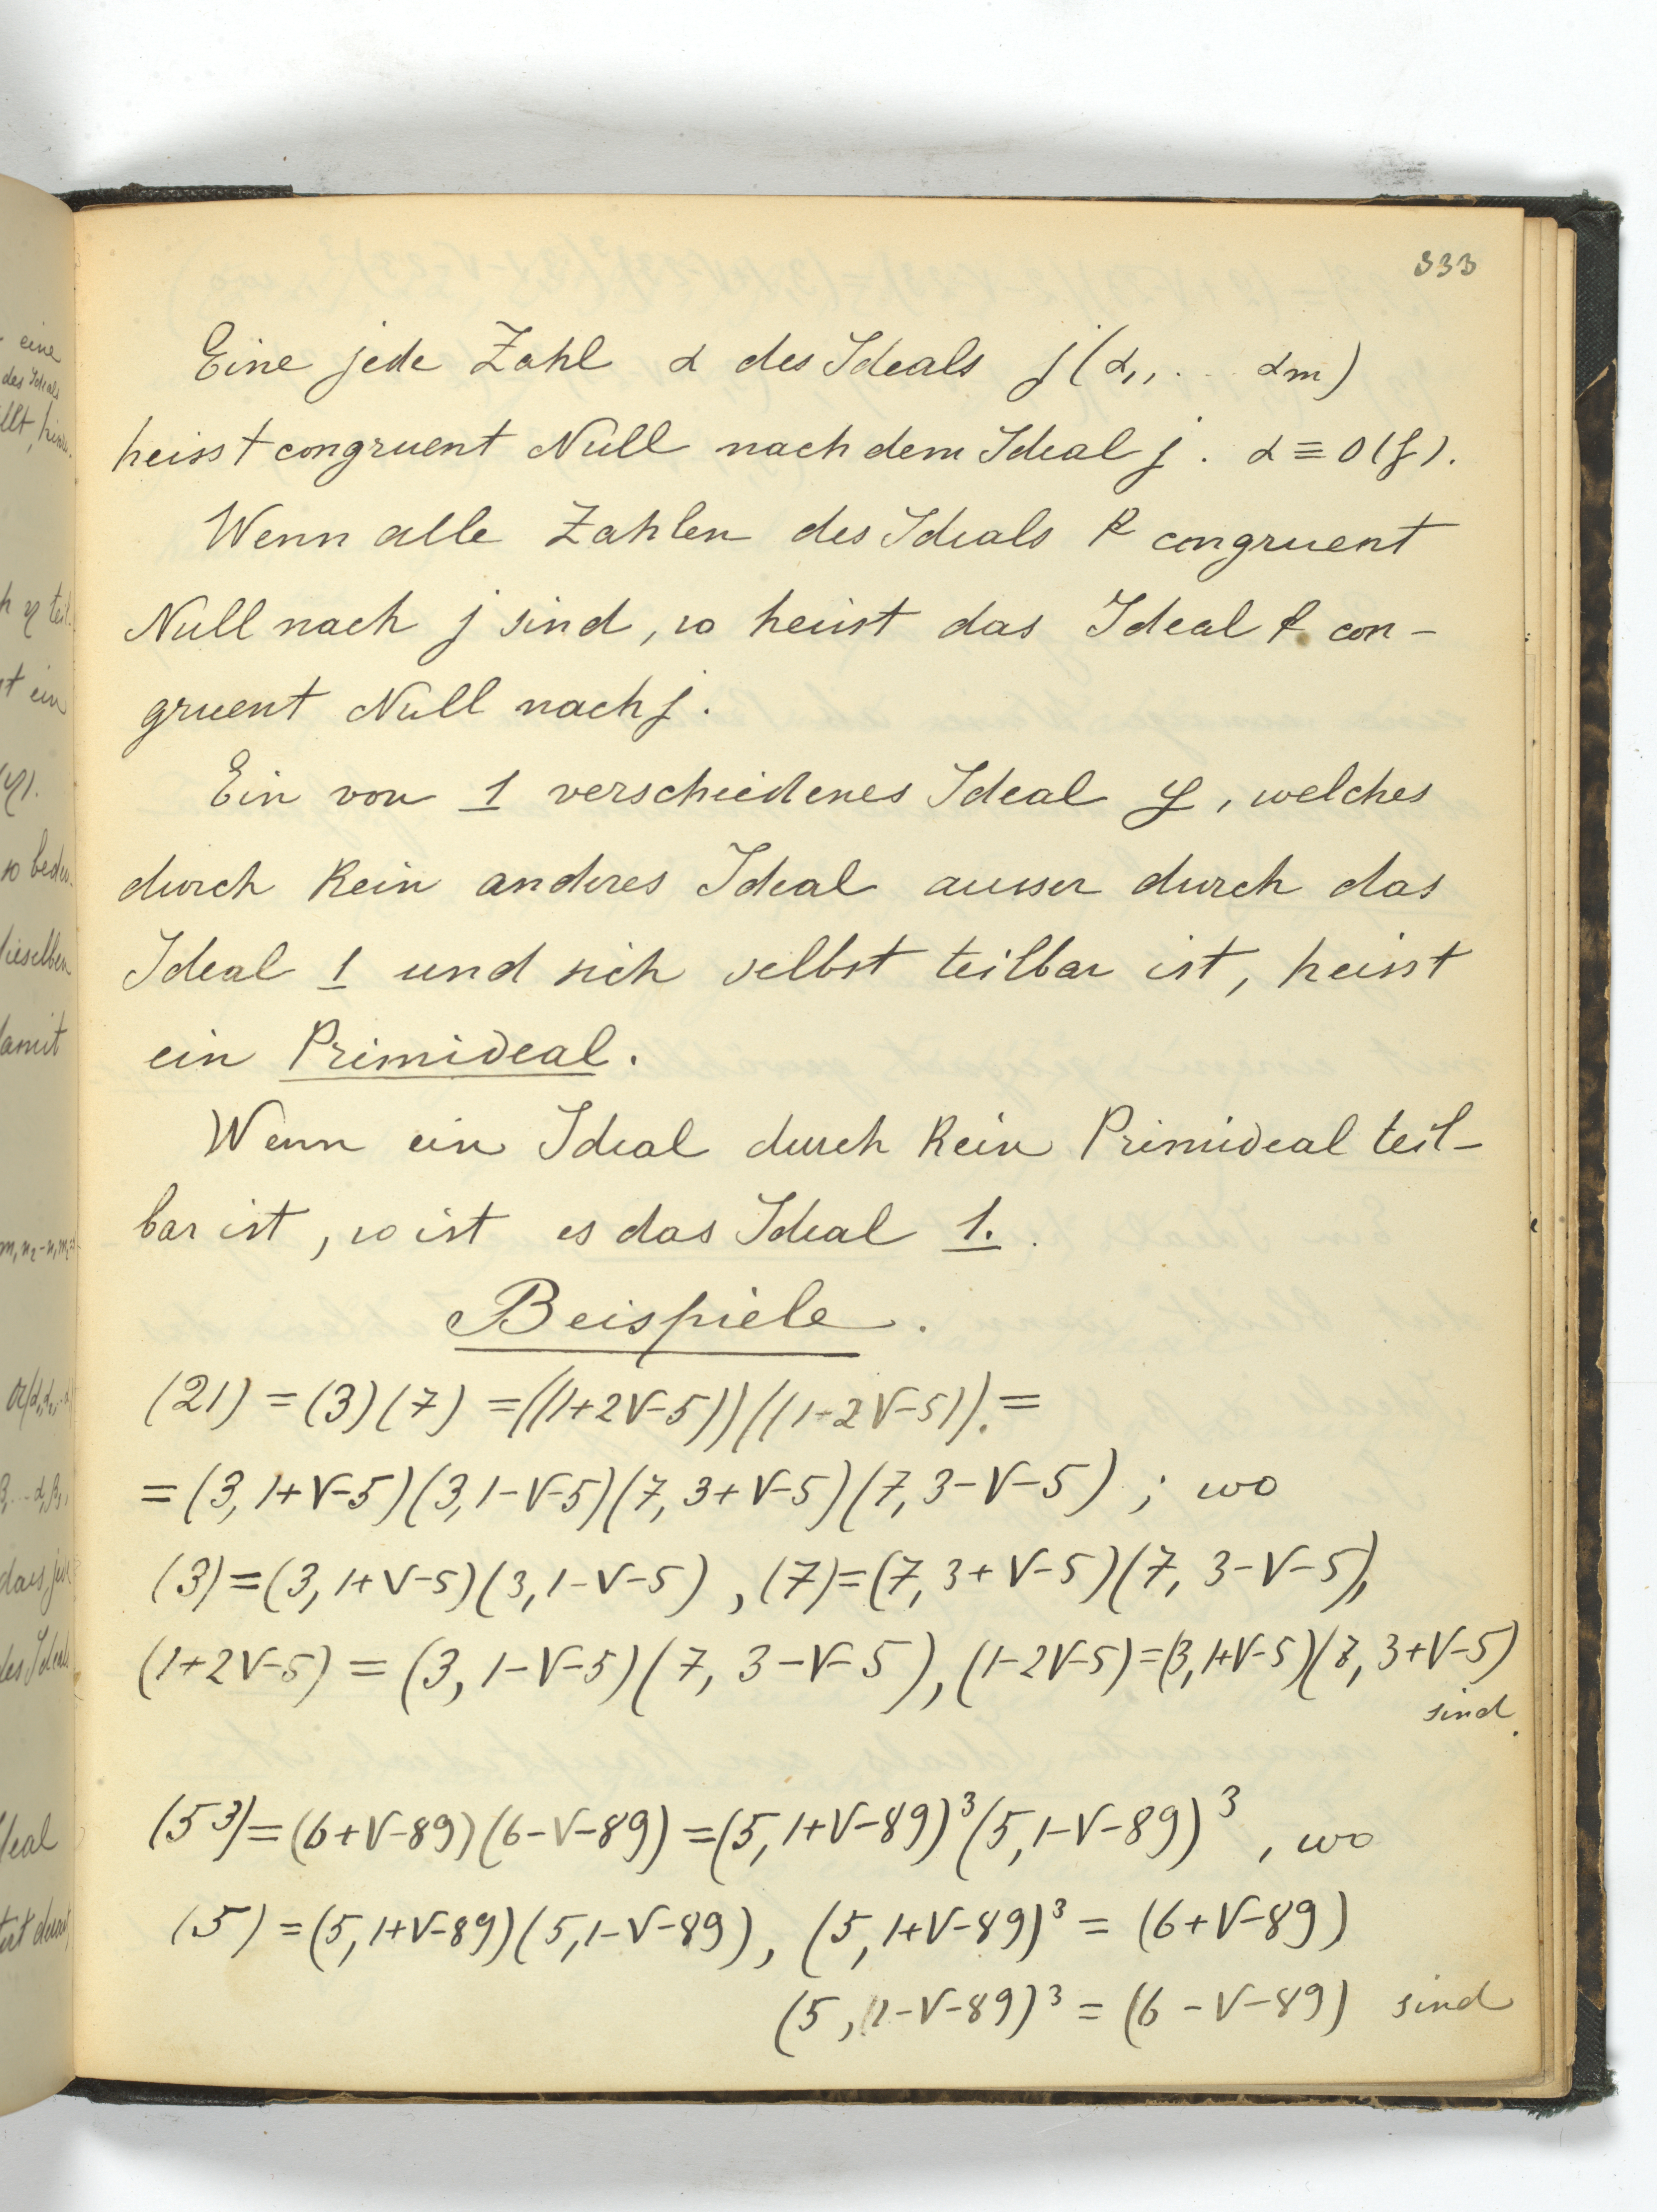 333
Eine jede Zahl α des Ideals j(α₁, . . αm)
heisst congruent Null nach dem Ideal j. α ≡ 0(j).
Wenn alle Zahlen des Ideals k congruent
Null nach j sind, so heisst das Ideal k con-
gruent Null nach j.
Ein von 1 verschiedenes Ideal y, welches
durch kein anderes Ideal ausser durch das
Ideal 1 und sich selbst teilbar ist, heisst
ein Primideal.
Wenn ein Ideal durch kein Primideal teil-
bar ist, so ist es das Ideal 1.
Beispiele.
(21) = (3)(7) = ((1+2√-5))((1-2√-5)). =
= (3, 1+√-5)(3, 1-√-5)(7, 3+√-5)(7, 3-√-5) ; wo
(3)=(3, 1+√-5)(3, 1-√-5), (7)=(7, 3+√-5)(7, 3-√-5),
(1+2√-5) = (3, 1-√-5)(7, 3-√-5), (1-2√-5)=(3, 1+√-5)(7, 3+√-5)
sind.
(5³)=(6+√-89)(6-√-89)=(5, 1+√-89)³(5, 1-√-89)³, wo
(5)=(5, 1+√-89)(5, 1-√-89), (5, 1+√-89)³ = (6+√-89)
(5, 1-√-89)³ = (6-√-89) sind